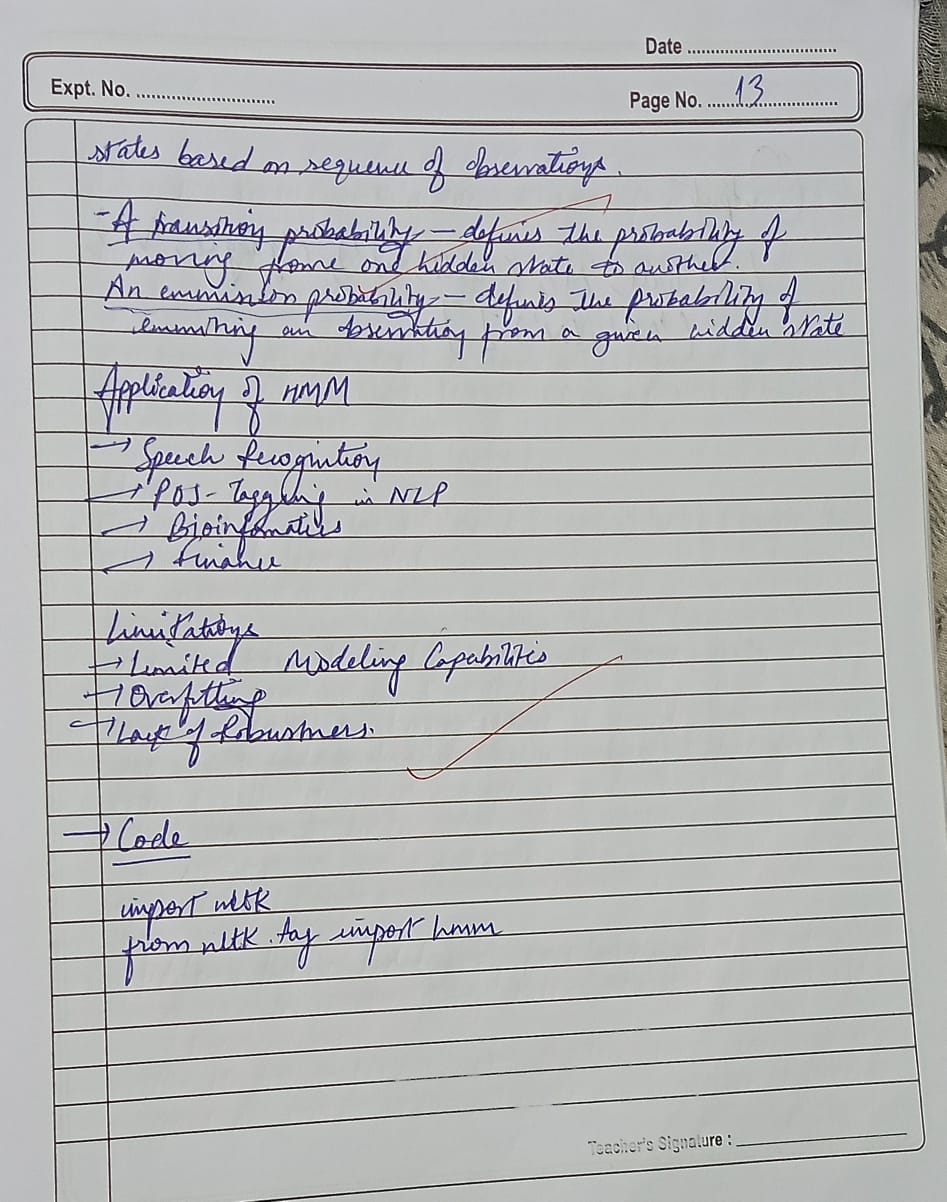 Date
Expt. No.
Page No. 13
states based on sequence of observations.
- A transition probability - defines the probability of
moving frome one hidden state to another.
An emmission probability - defines the probability of
emmiting an observation from a given hidden state
Application of HMM
→ Speech Recognition
→ POS-Tagging in NLP
→ Bioinfomatics
→ Finance
Limitations
→ Limited Modeling Capabilities
→ Overfitting
→ Lack of Robustness.
→ Code
import nltk
from nltk.tag import hmm
Teacher's Signature :